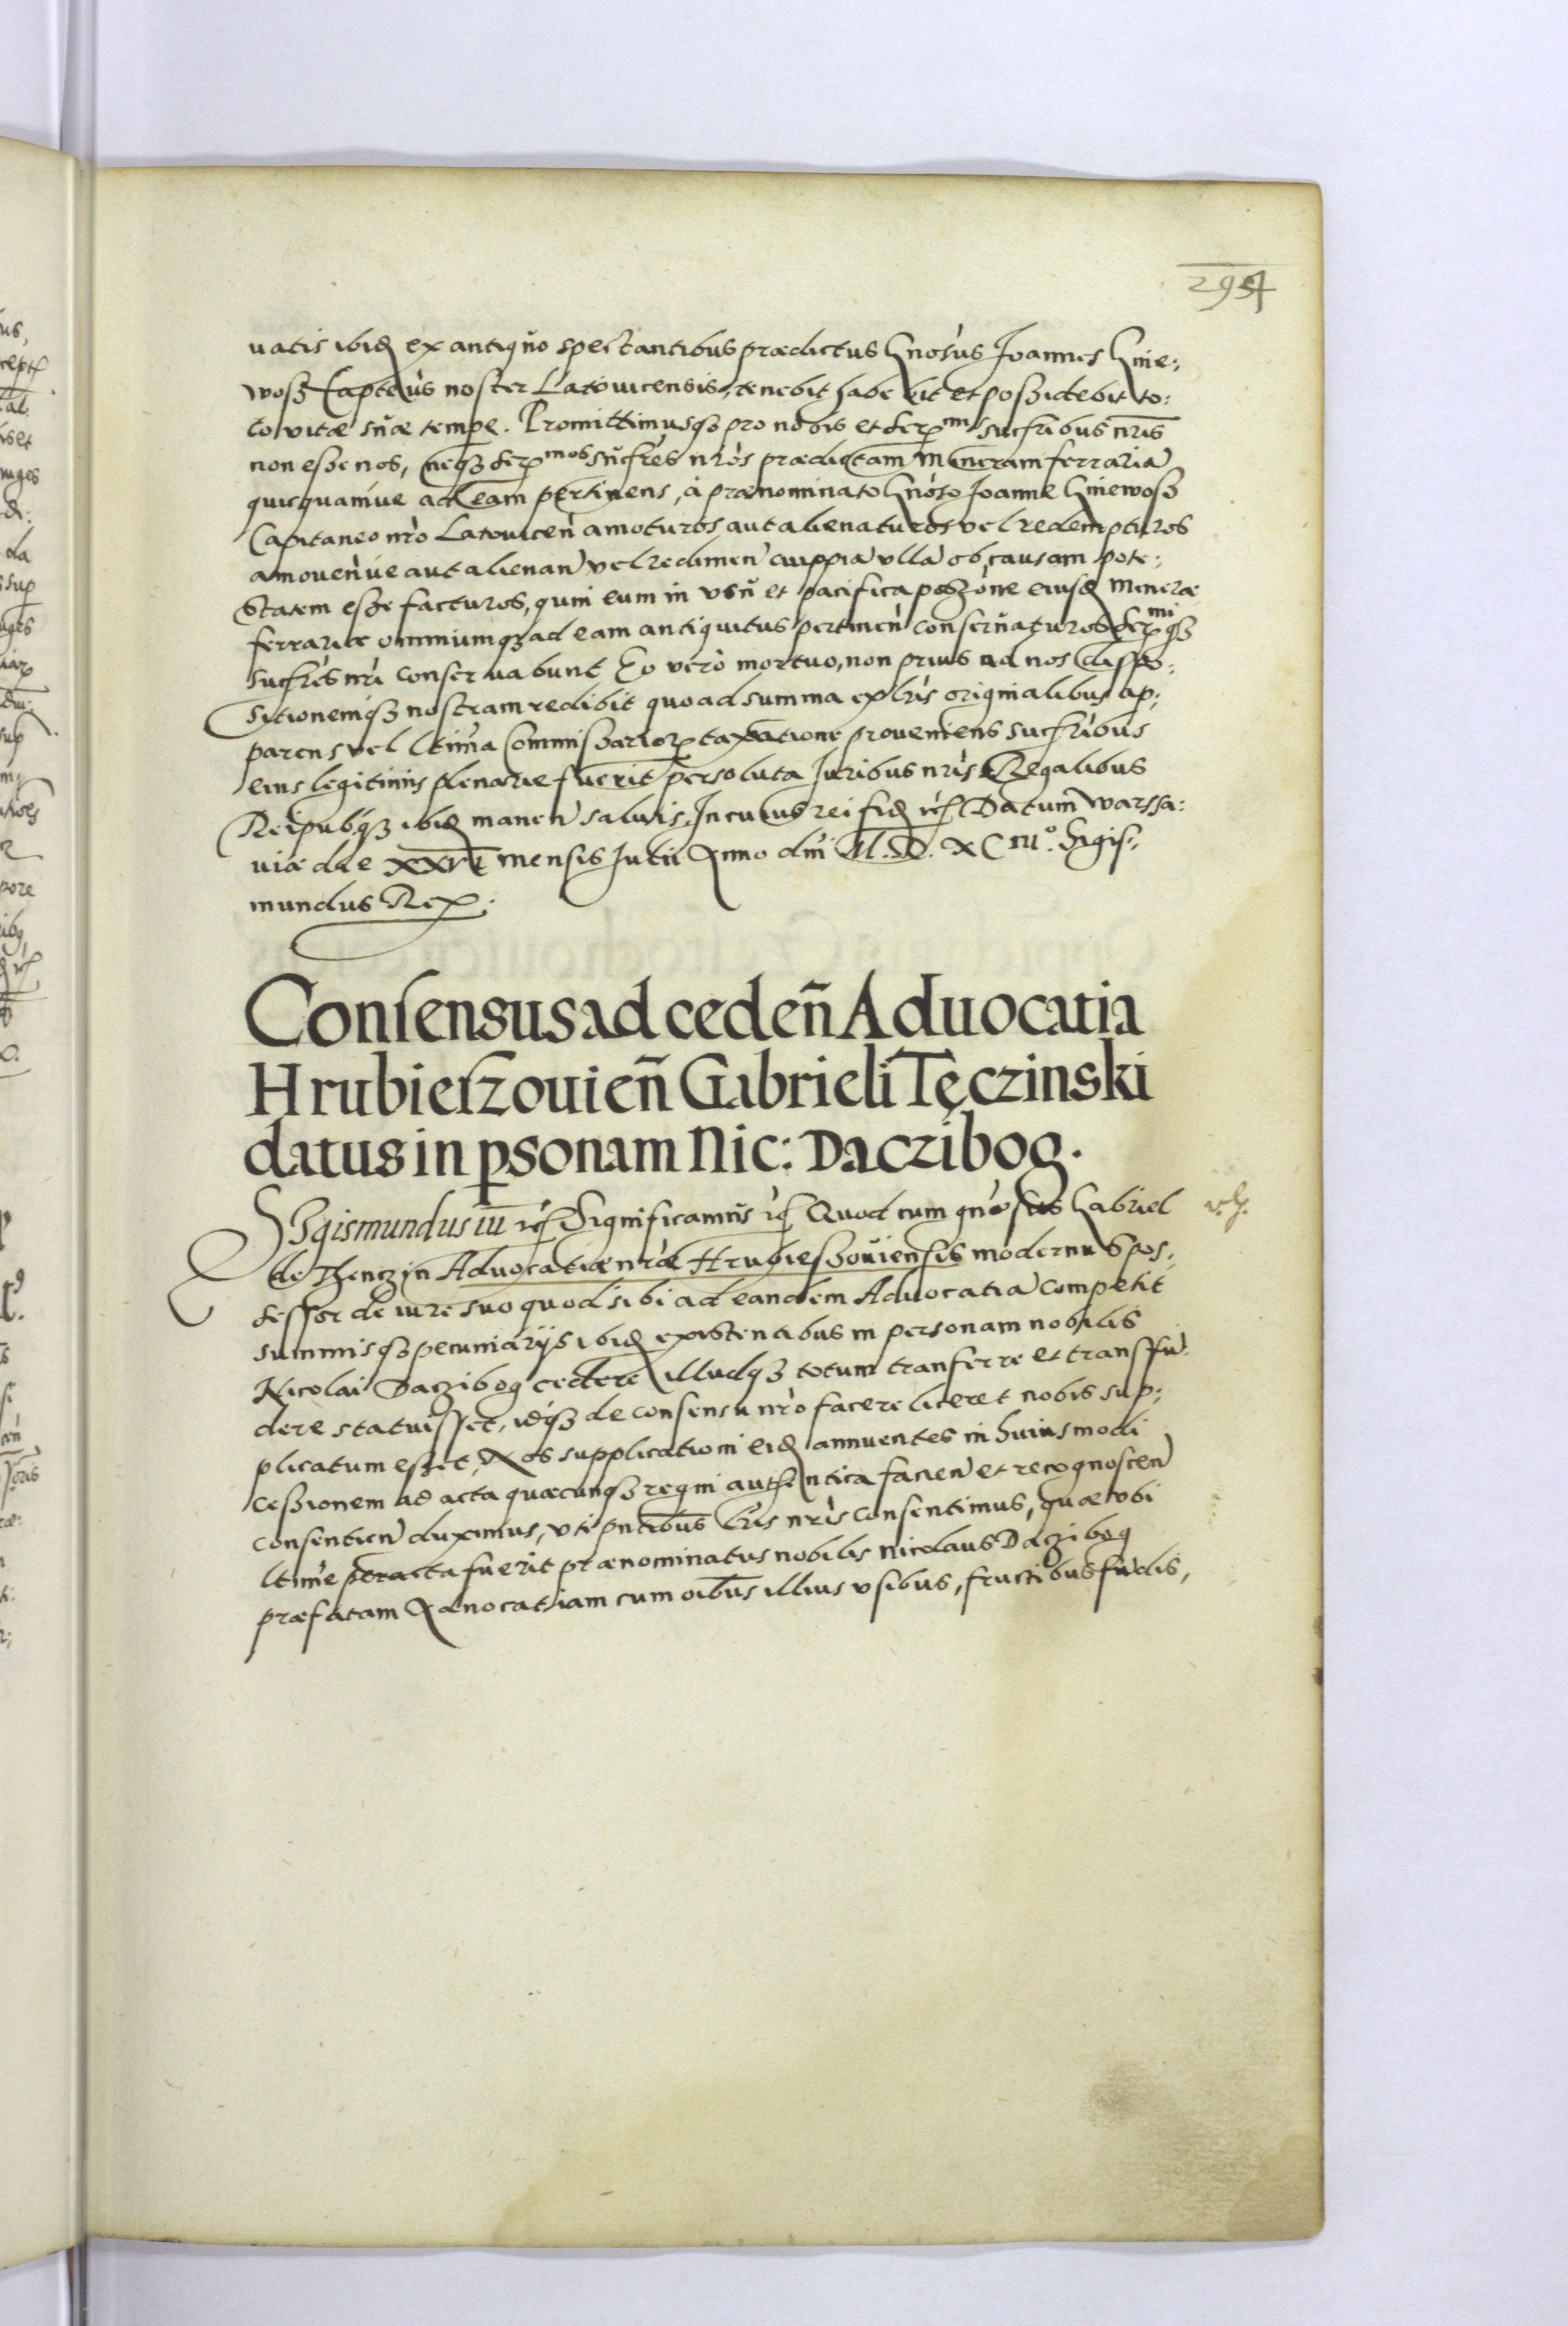 294
uatis ibid ex antiquo spectantibus praedictus Gnosus Joannes Gnie:
wosz Capteus noster Latouicensis, tenebit habebit et poszidebit to:
to vitae suae tempe. Promittimusqz pro nobis et Sermis sucsribus nris
non esze nos, neqz Sermos sucsres nros praedictam Mineram ferraria
quicquamue ad eam pertinens, à praenominato Gnoso Joanne Gniewosz
Capitaneo nro Latouicen amoturos aut alienaturos vel redempturos
amouenue aut alienan vel redimen cuippia vlla ob causam pote:
statem esze facturos, quin eum in vsu et pacifica poszone eiusd Minerae
ferrariae omniumqz ad eam antiquitus pertinen conseruaturos Sermiqz
sucsres nri conseruabunt Eo vero mortuo, non prius ad nos dispo:
sitionemqz nostram redibit quo ad summa ex lris originalibus ap:
parens vel ltima Commiszarior taxatione proueniens sucsribus
eius legitimis plenarie fuerit persoluta Juribus nris Regalibus
Reipubqz ibid manen saluis. In cuius rei fid etc Datum Warssa:
uiae die XXVI mensis Julii Anno dni M.D.XCIII°. Sigis:
mundus Rex.
Consensus ad ceden Aduocatia
Hrubieszouien Gabrieli Tęczinski
datus in psonam Nic: Daczibog.
Sigismundus III etc Significamus etc Quod cum gnosus Gabriel
de Thenczyn Aduocatiae nrae Hrubieszouiensis modernus pos:
sessor de iure suo quod sibi ad eandem Aduocatia competit
summisqz pecuniarijs ibid existentibus in personam nobilis
Nicolai Daczibog cedere illudqz totum tranferre et transfu
dere statuisset, idqz de consensu nro facere liceret nobis sup:
plicatum eszet, Nos supplicationi eid annuentes in huiusmodi
ceszionem ad acta quaecunqz regni authentica facien et recognoscen
consentien duximus, vti pntibus lris nris consentimus, quae vbi
ltime peracta fuerit praenominatus nobilis Nicolaus Daczibog
praefatam Aduocatiam cum oibus illius vsibus, fructibus fudis,